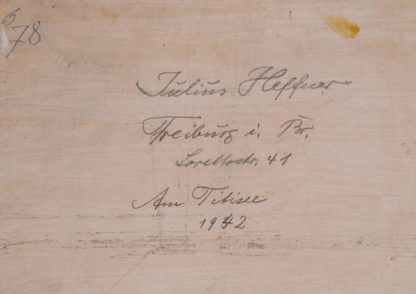 78
Julius Heffner
Freiburg i. Br.
Lorettostr. 41
Am Titisee
1942